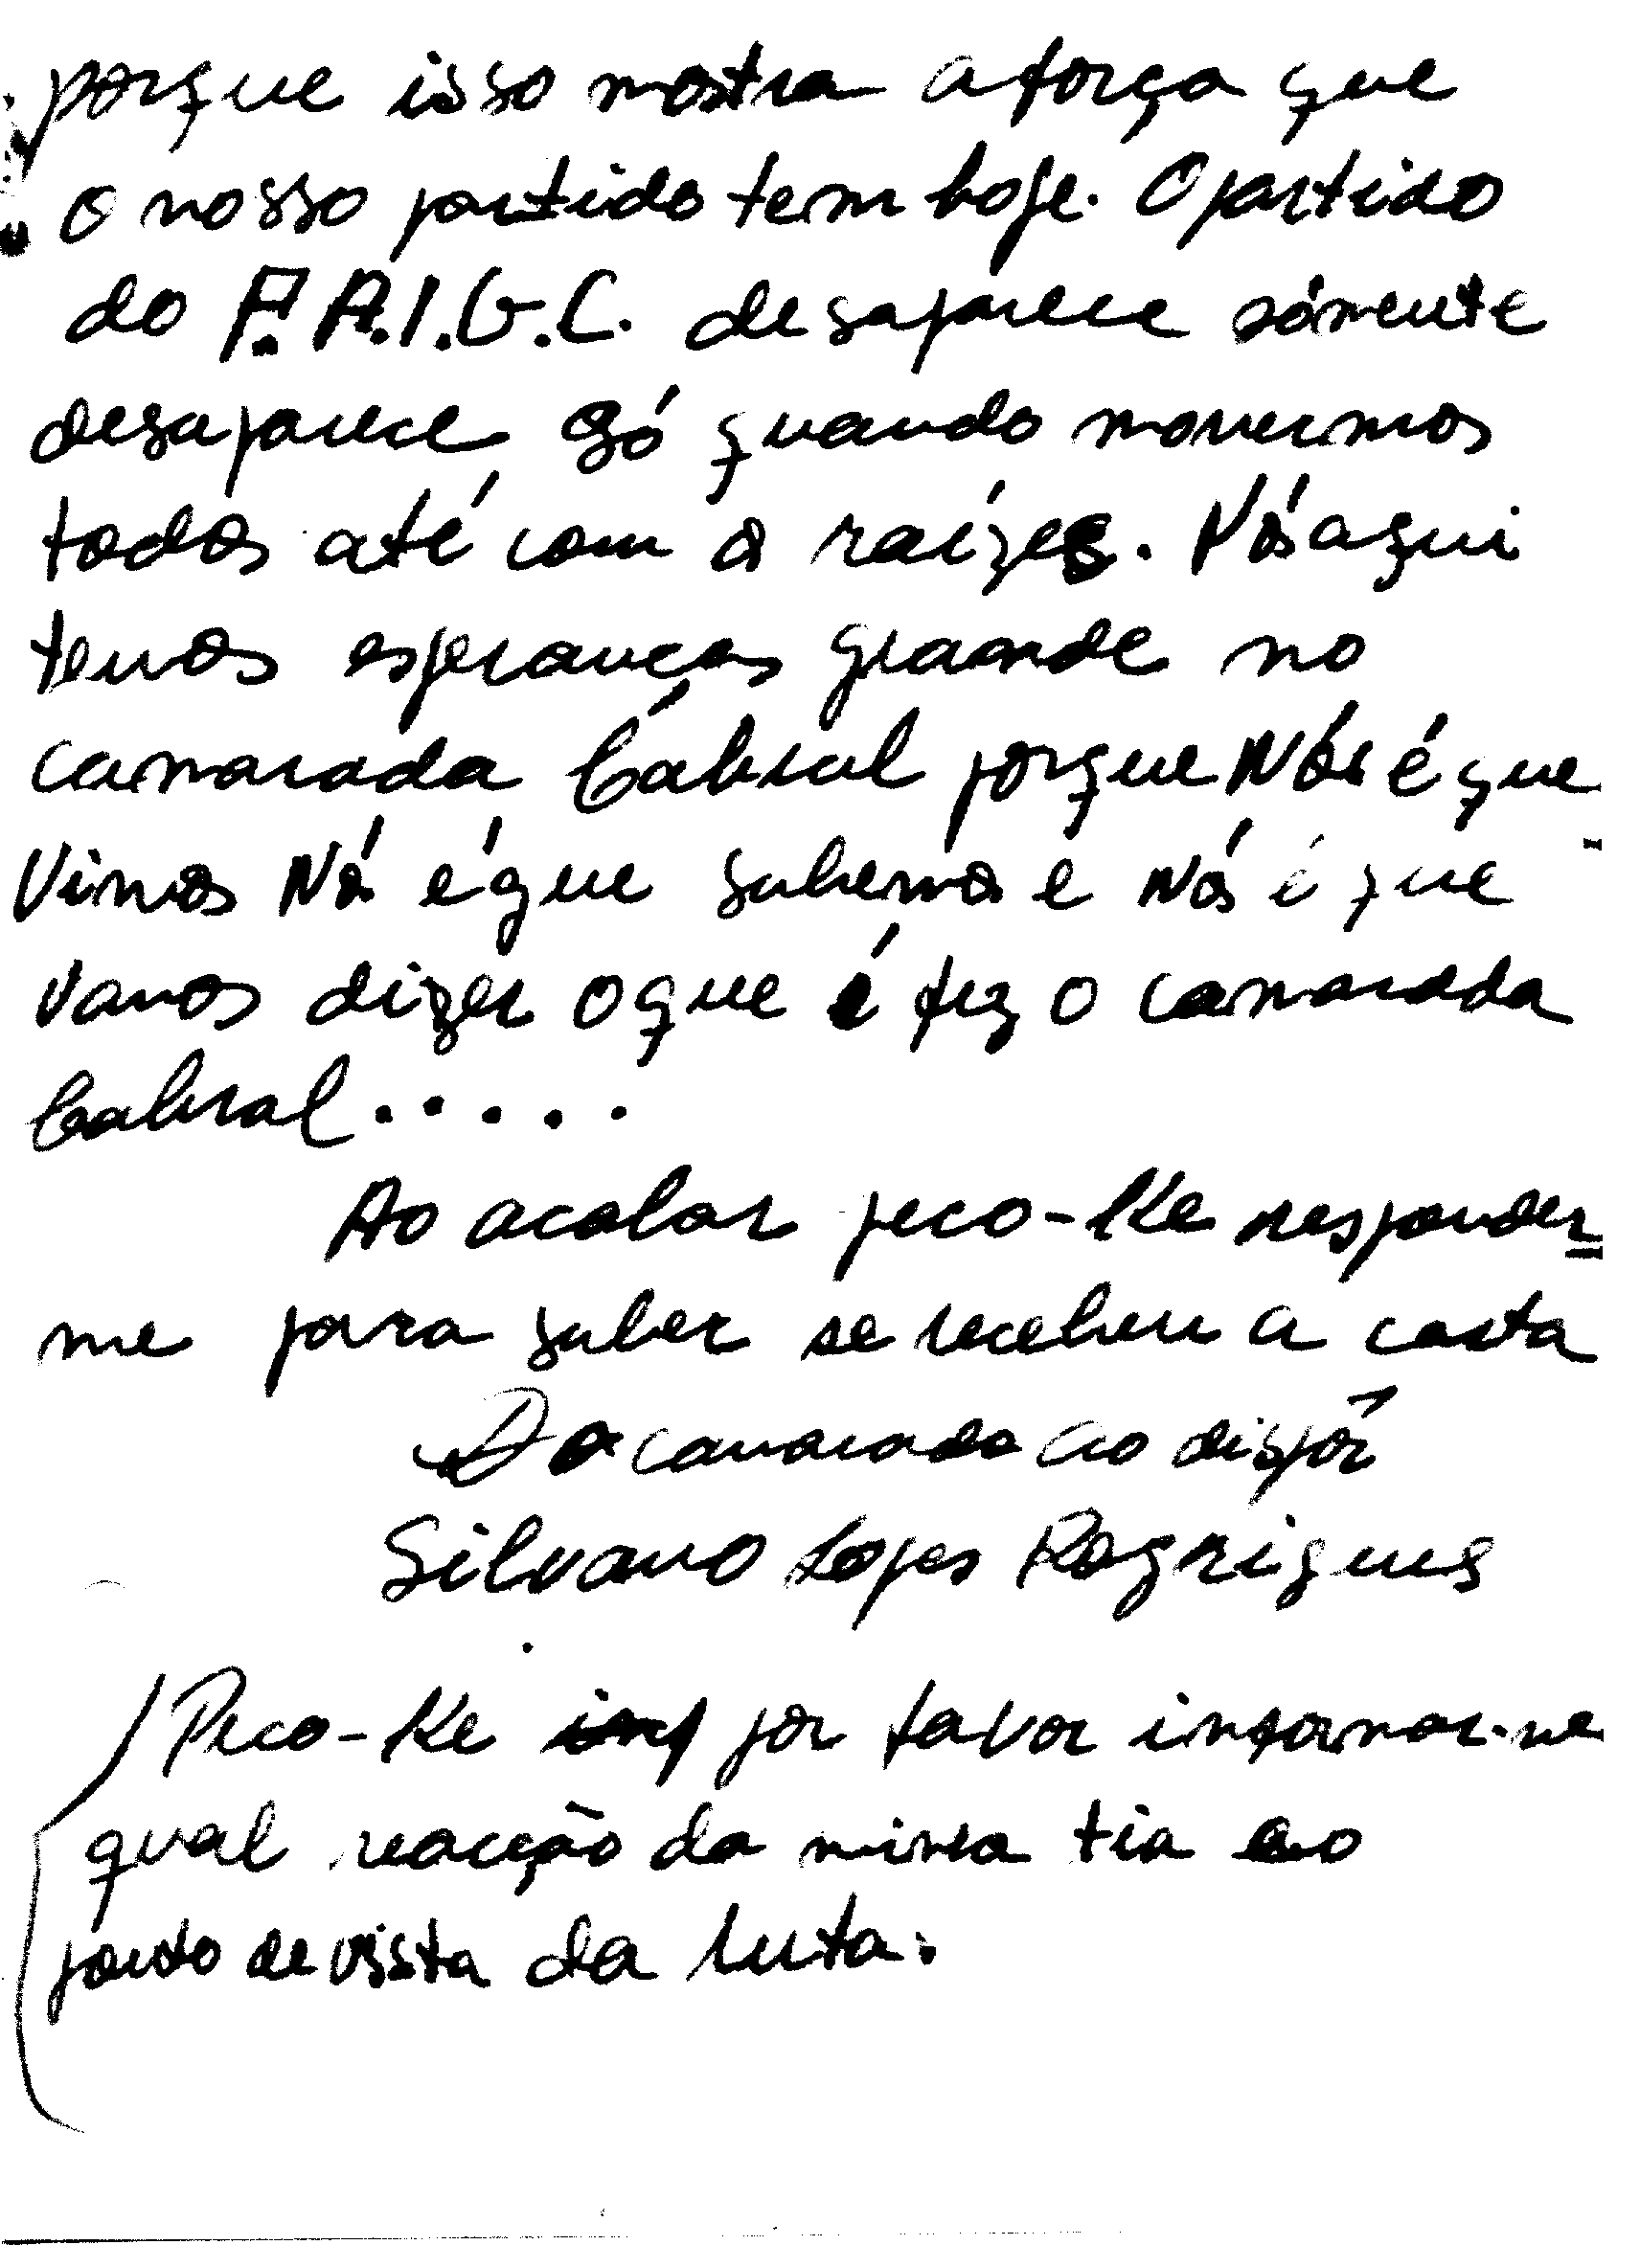 porque isso mostra a força que
o nosso partido tem hoje. O partido
do P.A.I.G.C. desaparece sómente
desaparece só quando morrermos
todos até com a raízes. Nós aqui
temos esperanças grande no
camarada Cábral porque Nós é que
Vimos Nós é que sabemos e Nós é que
vamos dizer o que é fez o camarada
Cabral.....
Ao acabar peco-Ke responder
me para saber se recebeu a carta
Do camarada ao dispôr
Silvano Lopes Rogrigues
Peco-Ke inf por favor informar-me
qual reacção da minha tia ao
ponto de vista da luta.